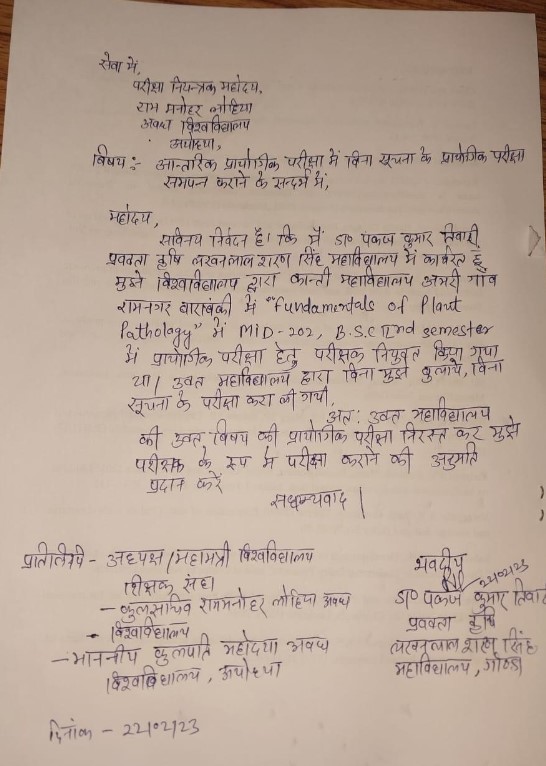 सेवा में,
परीक्षा नियन्त्रक महोदय,
राम मनोहर लोहिया
अवध विश्वविद्यालय
अयोध्या,
विषय :- आन्तरिक प्रायोगिक परीक्षा में बिना सूचना के प्रायोगिक परीक्षा
सम्पन्न कराने के सन्दर्भ में,
महोदय,
सविनय निवेदन है। कि मैं डा० पंकज कुमार तिवारी
प्रवक्ता कृषि लखनलाल शरण सिंह महाविद्यालय में कार्यरत हूं
मुझे विश्वविद्यालय द्वारा कान्ती महाविद्यालय अमरी गाँव
रामनगर बाराबंकी में "Fundamentals of Plant
Pathology" में MID-202, B.S.C IInd semester
में प्रायोगिक परीक्षा हेतु परीक्षक नियुक्त किया गया
था। उक्त महाविद्यालय द्वारा बिना मुझे बुलाये, बिना
सूचना के परीक्षा करा ली गयी,
अतः उक्त महाविद्यालय
की उक्त विषय की प्रायोगिक परीक्षा निरस्त कर मुझे
परीक्षक के रूप में परीक्षा कराने की अनुमति
प्रदान करें
सधन्यवाद |
प्रतिलिपि - अध्यक्ष/महामंत्री विश्वविद्यालय
शिक्षक संघ
- कुलसचिव राममनोहर लोहिया अवध
विश्वविद्यालय
- माननीय कुलपति महोदया अवध
विश्वविद्यालय, अयोध्या
भवदीय
22/02/23
डा० पंकज कुमार तिवा
प्रवक्ता कृषि
लखनलाल शरण सिंह
महाविद्यालय, गोण्डा
दिनांक - 22/02/23